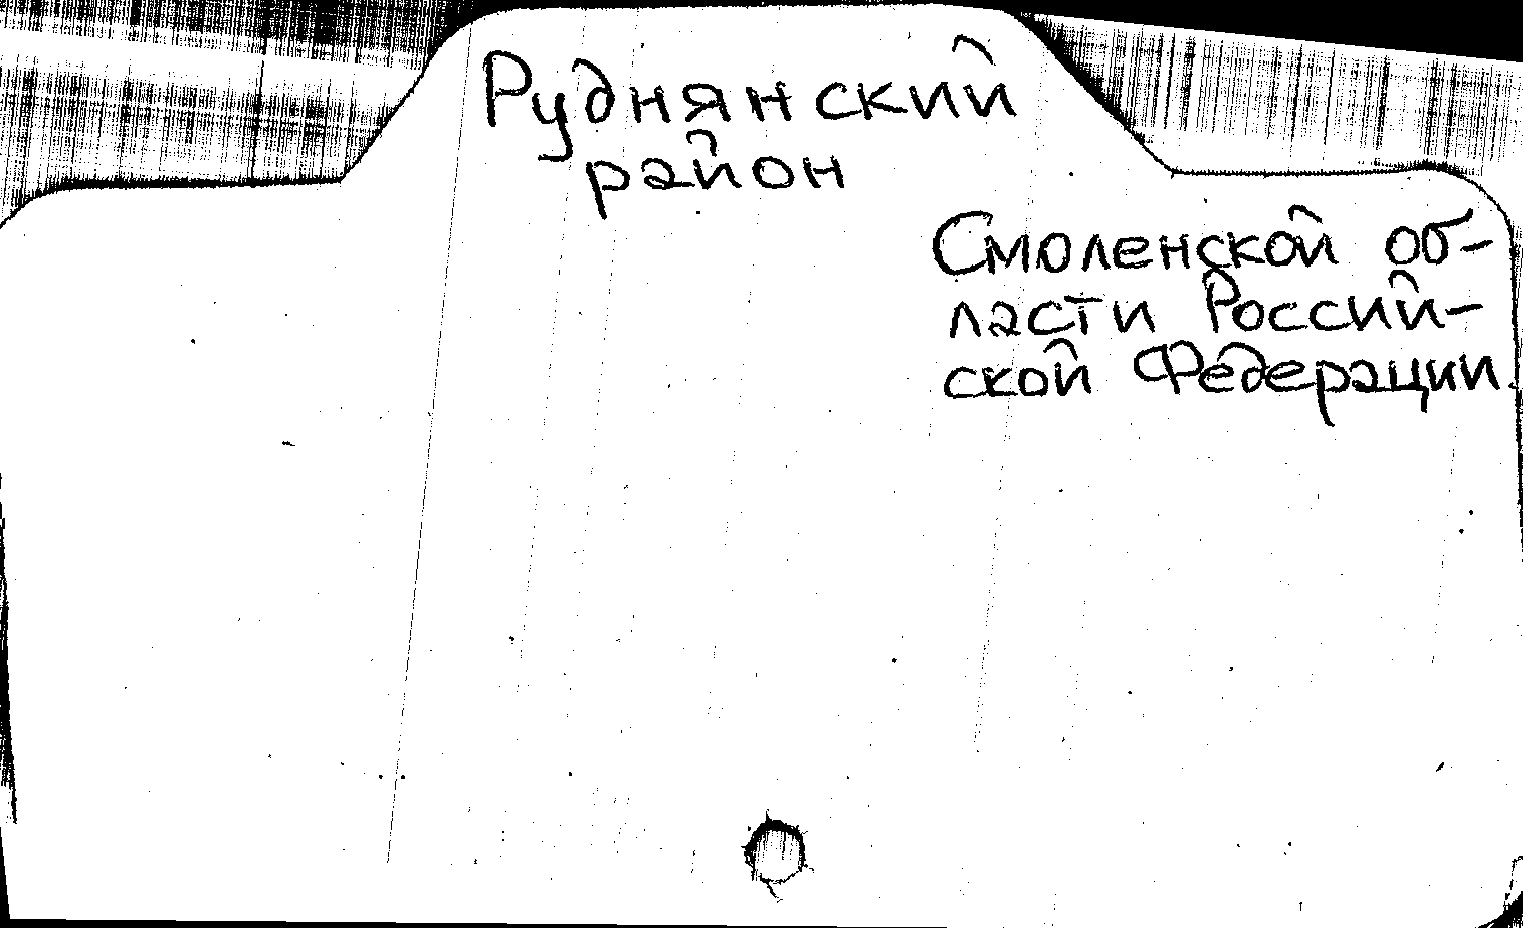 Руднянский
район
Смоленской об-
ласти Россий-
ской Федерации